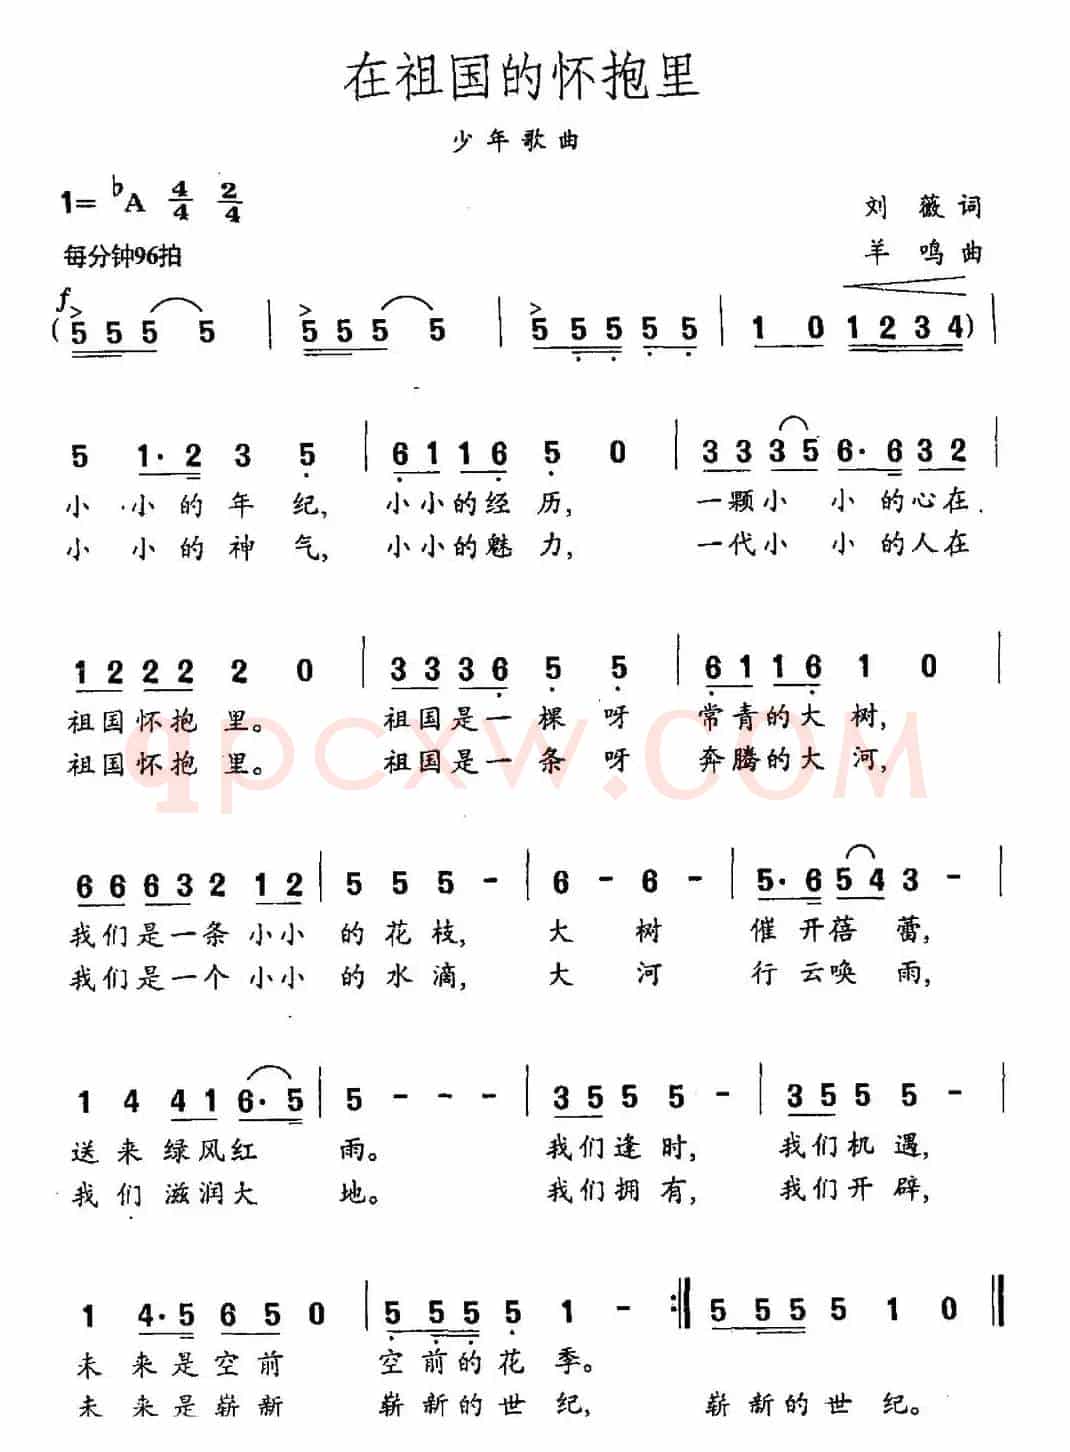 在祖国的怀抱里
少年歌曲
1=♭A 4/4 2/4
刘 薇 词
每分钟96拍
羊 鸣 曲
f
(5 5 5 5 | 5 5 5 5 | 5 5 5 5 5 | 1 0 1 2 3 4) |
5 1· 2 3 5 | 6 1 1 6 5 0 | 3 3 3 5 6· 6 3 2 |
小 小 的 年 纪, 小小的经 历, 一颗小 小 的心在
小 小 的 神 气, 小小的魅 力, 一代小 小 的人在
1 2 2 2 2 0 | 3 3 3 6 5 5 | 6 1 1 6 1 0 |
祖国怀抱 里。 祖国是一 棵 呀 常青的大 树,
祖国怀抱 里。 祖国是一 条 呀 奔腾的大 河,
qpcxw.COM
6 6 6 3 2 1 2 | 5 5 5 - | 6 - 6 - | 5· 6 5 4 3 - |
我们是一条 小小 的 花 枝, 大 树 催 开蓓 蕾,
我们是一个 小小 的 水 滴, 大 河 行 云唤 雨,
1 4 4 1 6· 5 | 5 - - - | 3 5 5 5 - | 3 5 5 5 - |
送 来 绿风红 雨。 我们逢 时, 我们机 遇,
我 们 滋润大 地。 我们拥 有, 我们开 辟,
1 4· 5 6 5 0 | 5 5 5 5 1 - :‖ 5 5 5 5 1 0 ‖
未 来是空前 空 前的花 季。
未 来是崭新 崭 新的世 纪, 崭 新的世 纪。